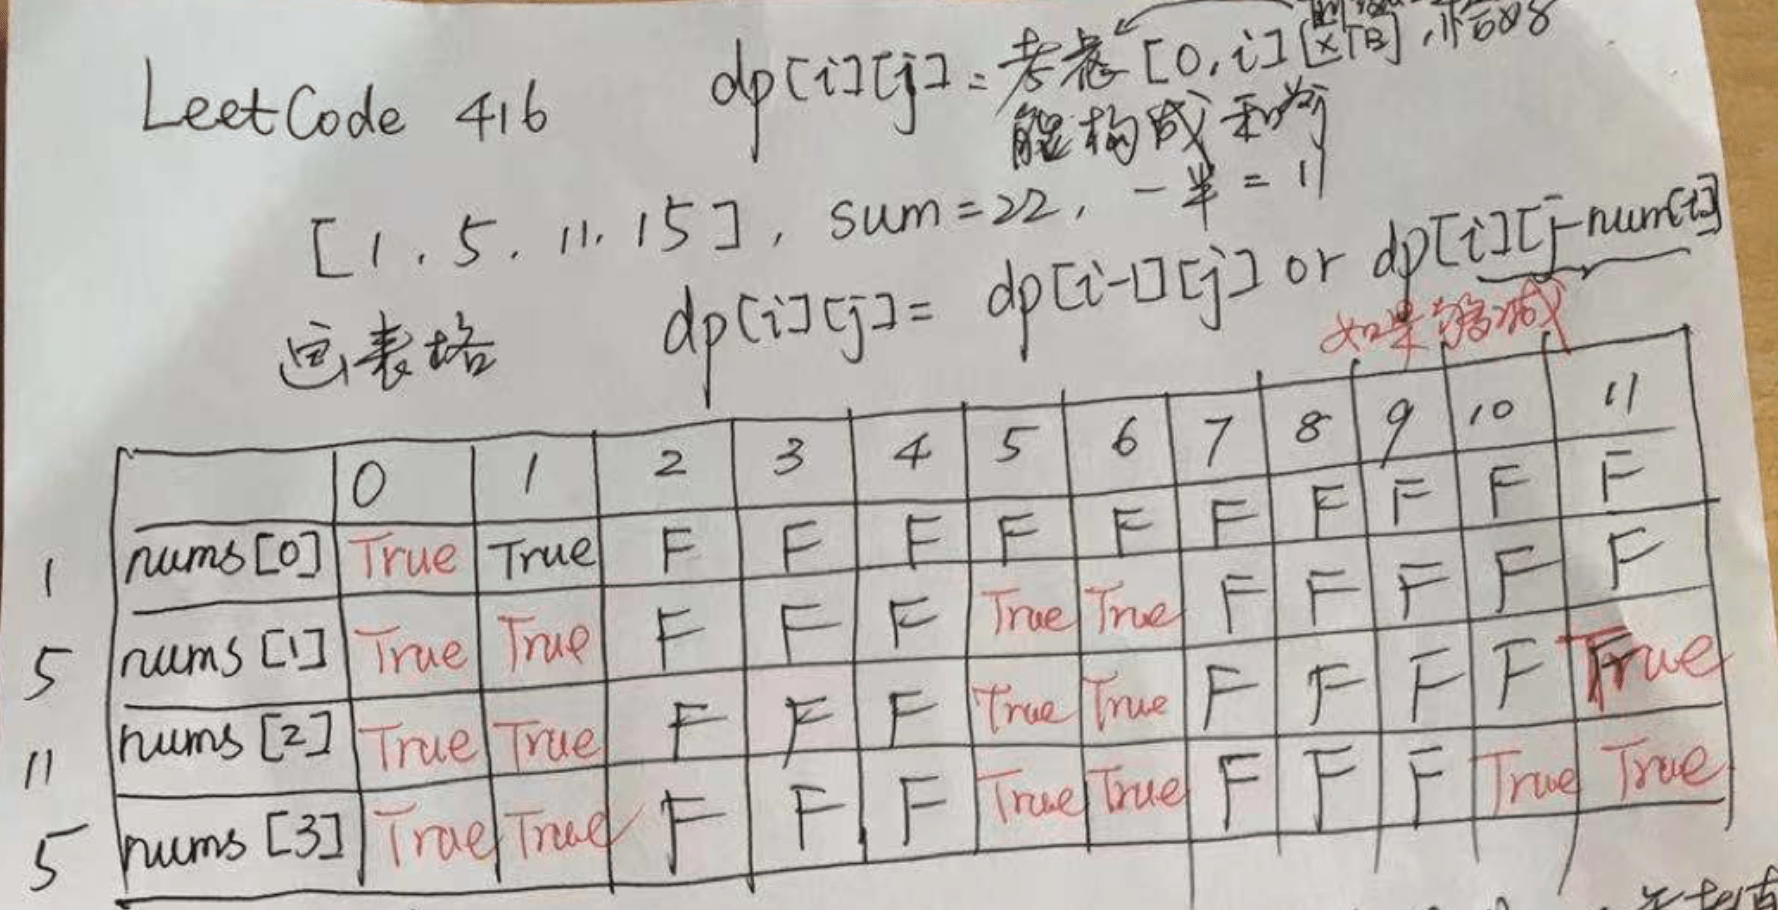 LeetCode 416
dp[i][j] = 考虑[0,i]区间,恰好
能构成和为j
[1, 5, 11, 15], sum=22, 一半=11
dp[i][j]= dp[i-1][j] or dp[i][j-num[i]]
如果够减
画表格
0 1 2 3 4 5 6 7 8 9 10 11
1 nums[0] True True F F F F F F F F F F
5 nums[1] True True F F F True True F F F F F
11 nums[2] True True F F F True True F F F F True
5 nums[3] True True F F F True True F F F True True